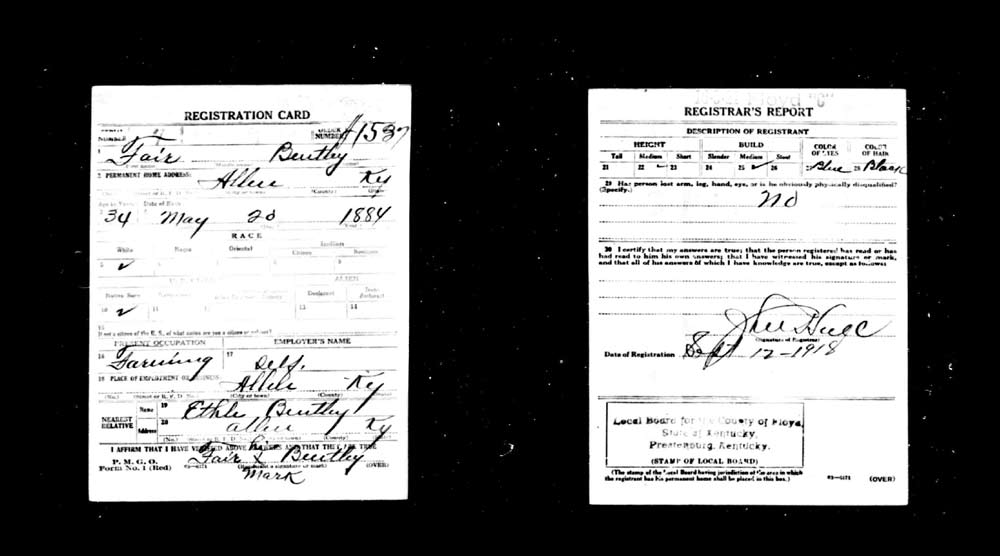 REGISTRATION CARD
NUMBER
ORDER NUMBER
1 Fair Bentley
2 PERMANENT HOME ADDRESS: Allen Ky
(County)
Age in Years Date of Birth
34 May 20 1884
RACE
White Negro Oriental Indian
Citizen
5 ✓
ALIEN
Native Born Declarant
10 ✓ 11 13 14
15
If not a citizen of the U. S., of what nation are you a citizen or subject?
PRESENT OCCUPATION EMPLOYER'S NAME
16 Farming 17 Self.
18 PLACE OF EMPLOYMENT OR BUSINESS: Allen Ky
(No.) (City or town) (County)
NEAREST RELATIVE
Name 19 Ethle Bentley
Address 20 Allen Ky
(No.) (County)
I AFFIRM THAT I HAVE VERIFIED ABOVE ANSWERS AND THAT THEY ARE TRUE
his
Fair X Bentley
Mark
P. M. G. O.
Form No. 1 (Red) 03—6171 (OVER)
REGISTRAR'S REPORT
DESCRIPTION OF REGISTRANT
HEIGHT BUILD COLOR OF EYES COLOR OF HAIR
Tall Medium Short Slender Medium Stout
21 22 ✓ 23 24 25 ✓ 26 27 Blue 28 Black
29 Has person lost arm, leg, hand, eye, or is he obviously physically disqualified?
(Specify.) No
30 I certify that my answers are true; that the person registered has read or has
had read to him his own answers; that I have witnessed his signature or mark,
and that all of his answers of which I have knowledge are true, except as follows:
(Signature of Registrar)
Date of Registration Sept 12-1918
Local Board for the County of Floyd,
State of Kentucky,
Prestonburg, Kentucky.
(STAMP OF LOCAL BOARD)
(The stamp of the Local Board having jurisdiction of the area in which
the registrant has his permanent home shall be placed in this box.)
03—6171 (OVER)